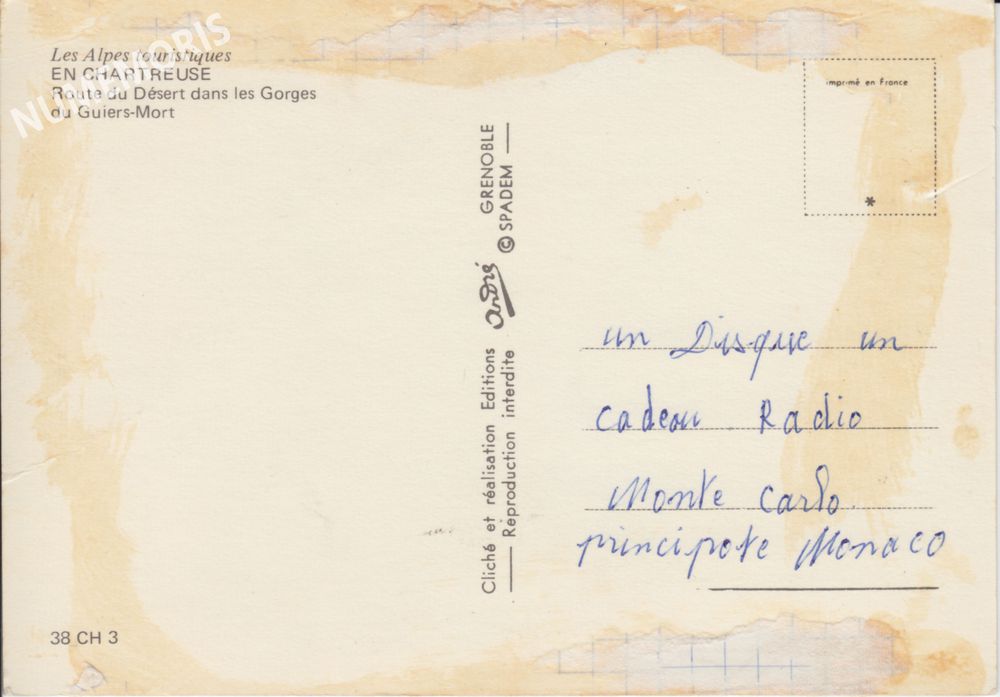 NUMEMORIS
Les Alpes touristiques
EN CHARTREUSE
Route du Désert dans les Gorges
du Guiers-Mort
38 CH 3
Cliché et réalisation Editions André GRENOBLE
Reproduction interdite © SPADEM
imprimé en France
*
un Disque un
cadeau Radio
Monte Carlo
principote Monaco